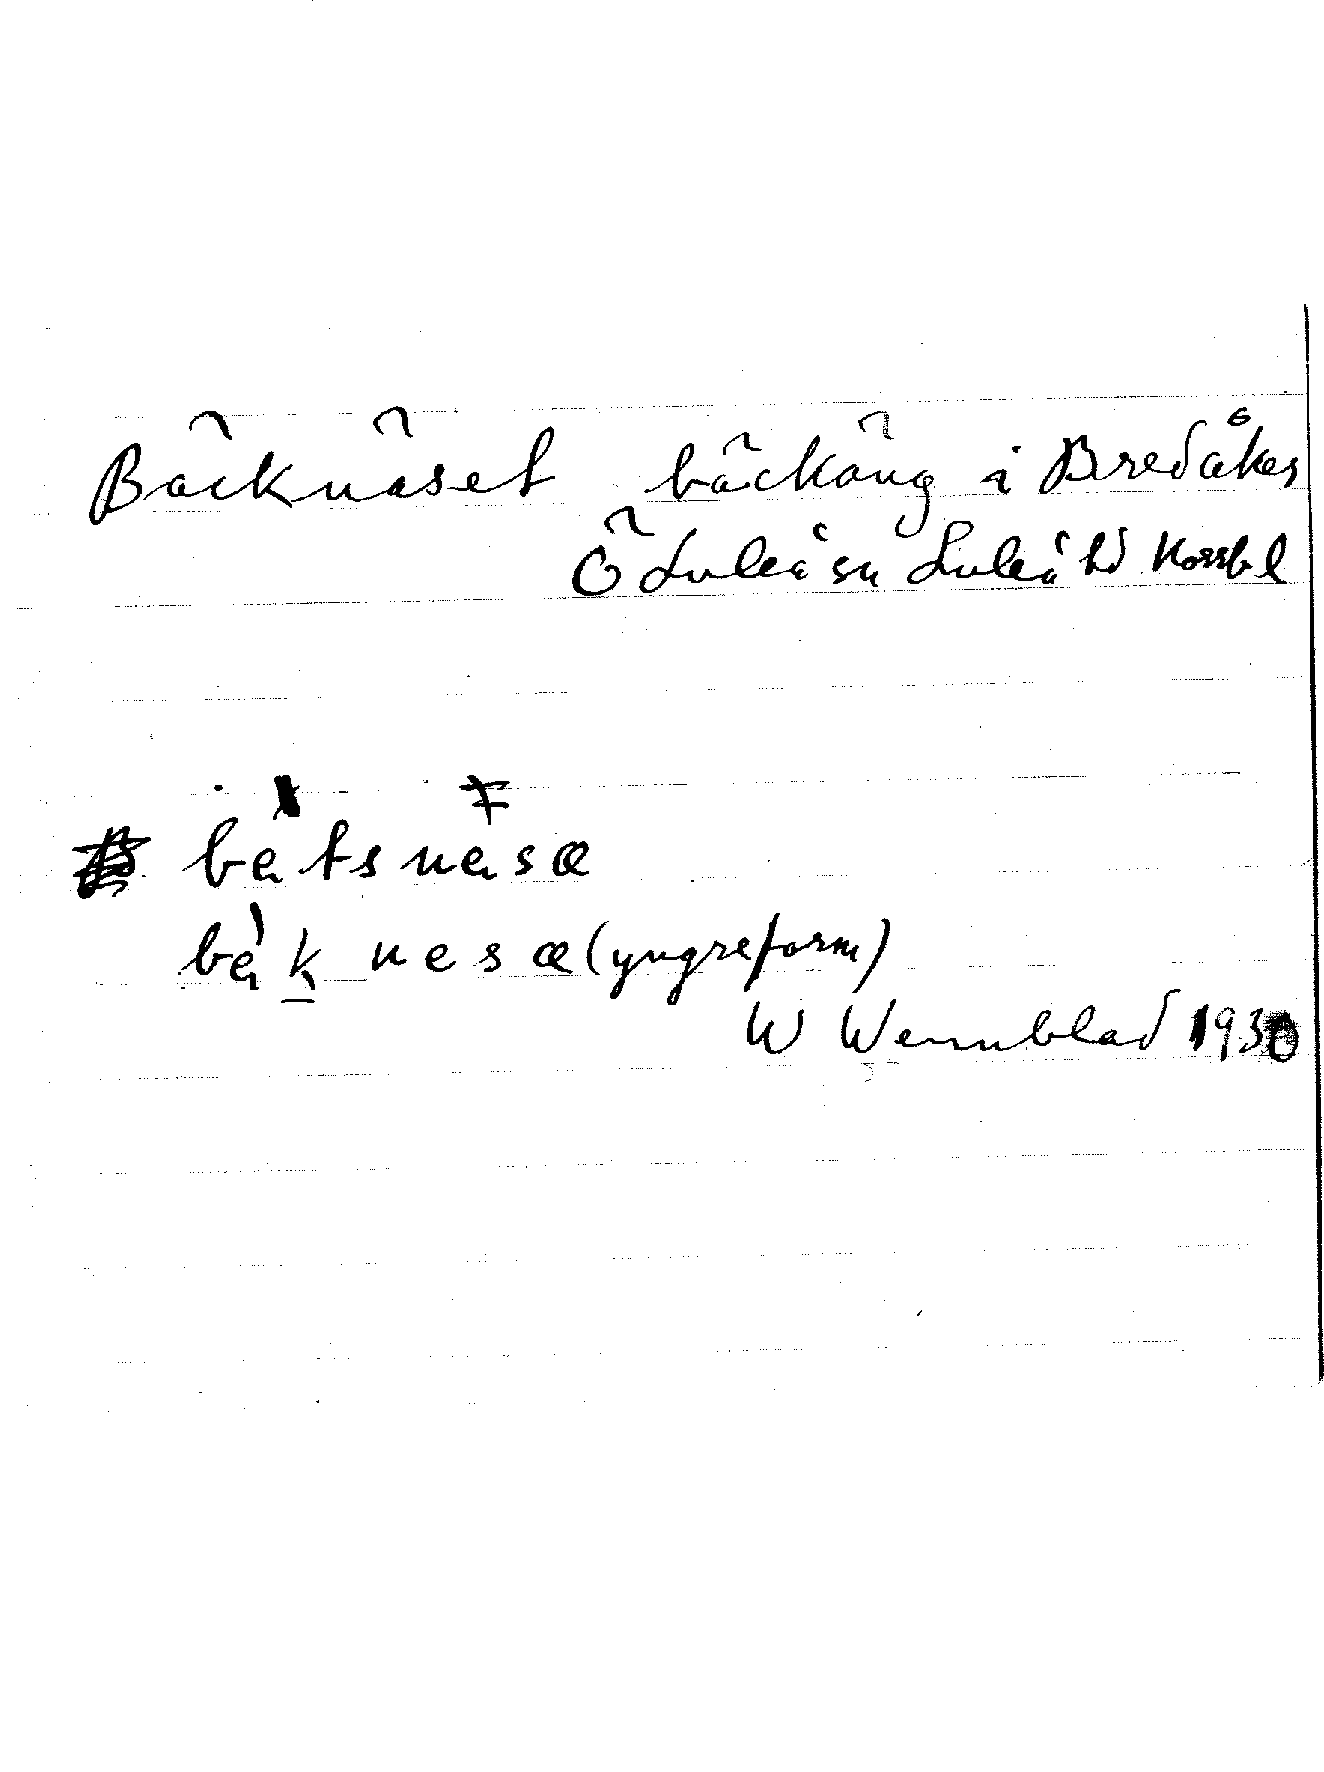 Bäcknäset bäckäng i Bredåker
Ö Luleå sn Luleå hd Norrb l
bätsnäsæ
bäk næsæ (yngre form)
W Wennblad 1930